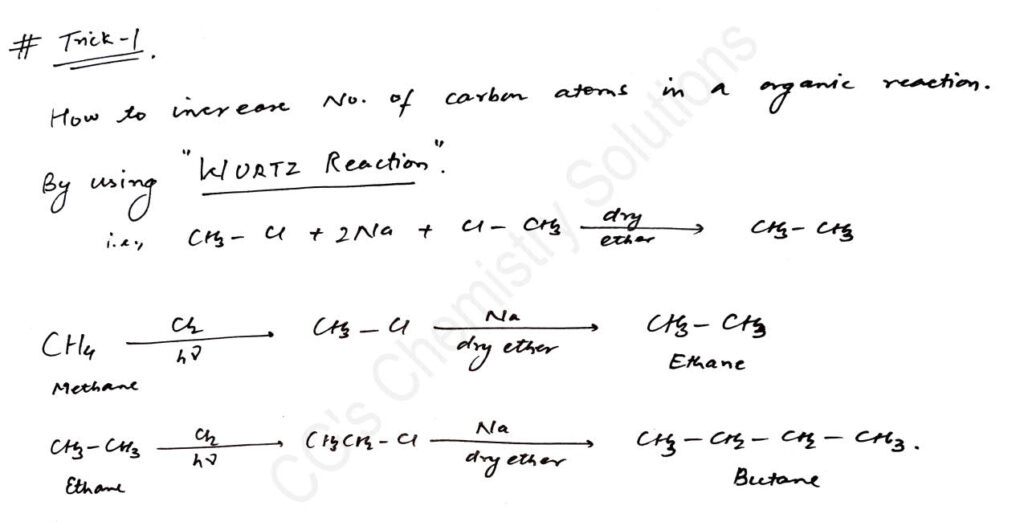 # Trick-1.
How to increase No. of carbon atoms in a organic reaction.
By using "WURTZ Reaction".
i.e., CH3 - Cl + 2Na + Cl - CH3 dry ether → CH3 - CH3
CH4 Cl2 hν → CH3 - Cl Na dry ether → CH3 - CH3
Methane Ethane
CH3 - CH3 Cl2 hν → CH3CH2 - Cl Na dry ether → CH3 - CH2 - CH2 - CH3.
Ethane Butane
CC's Chemistry Solutions